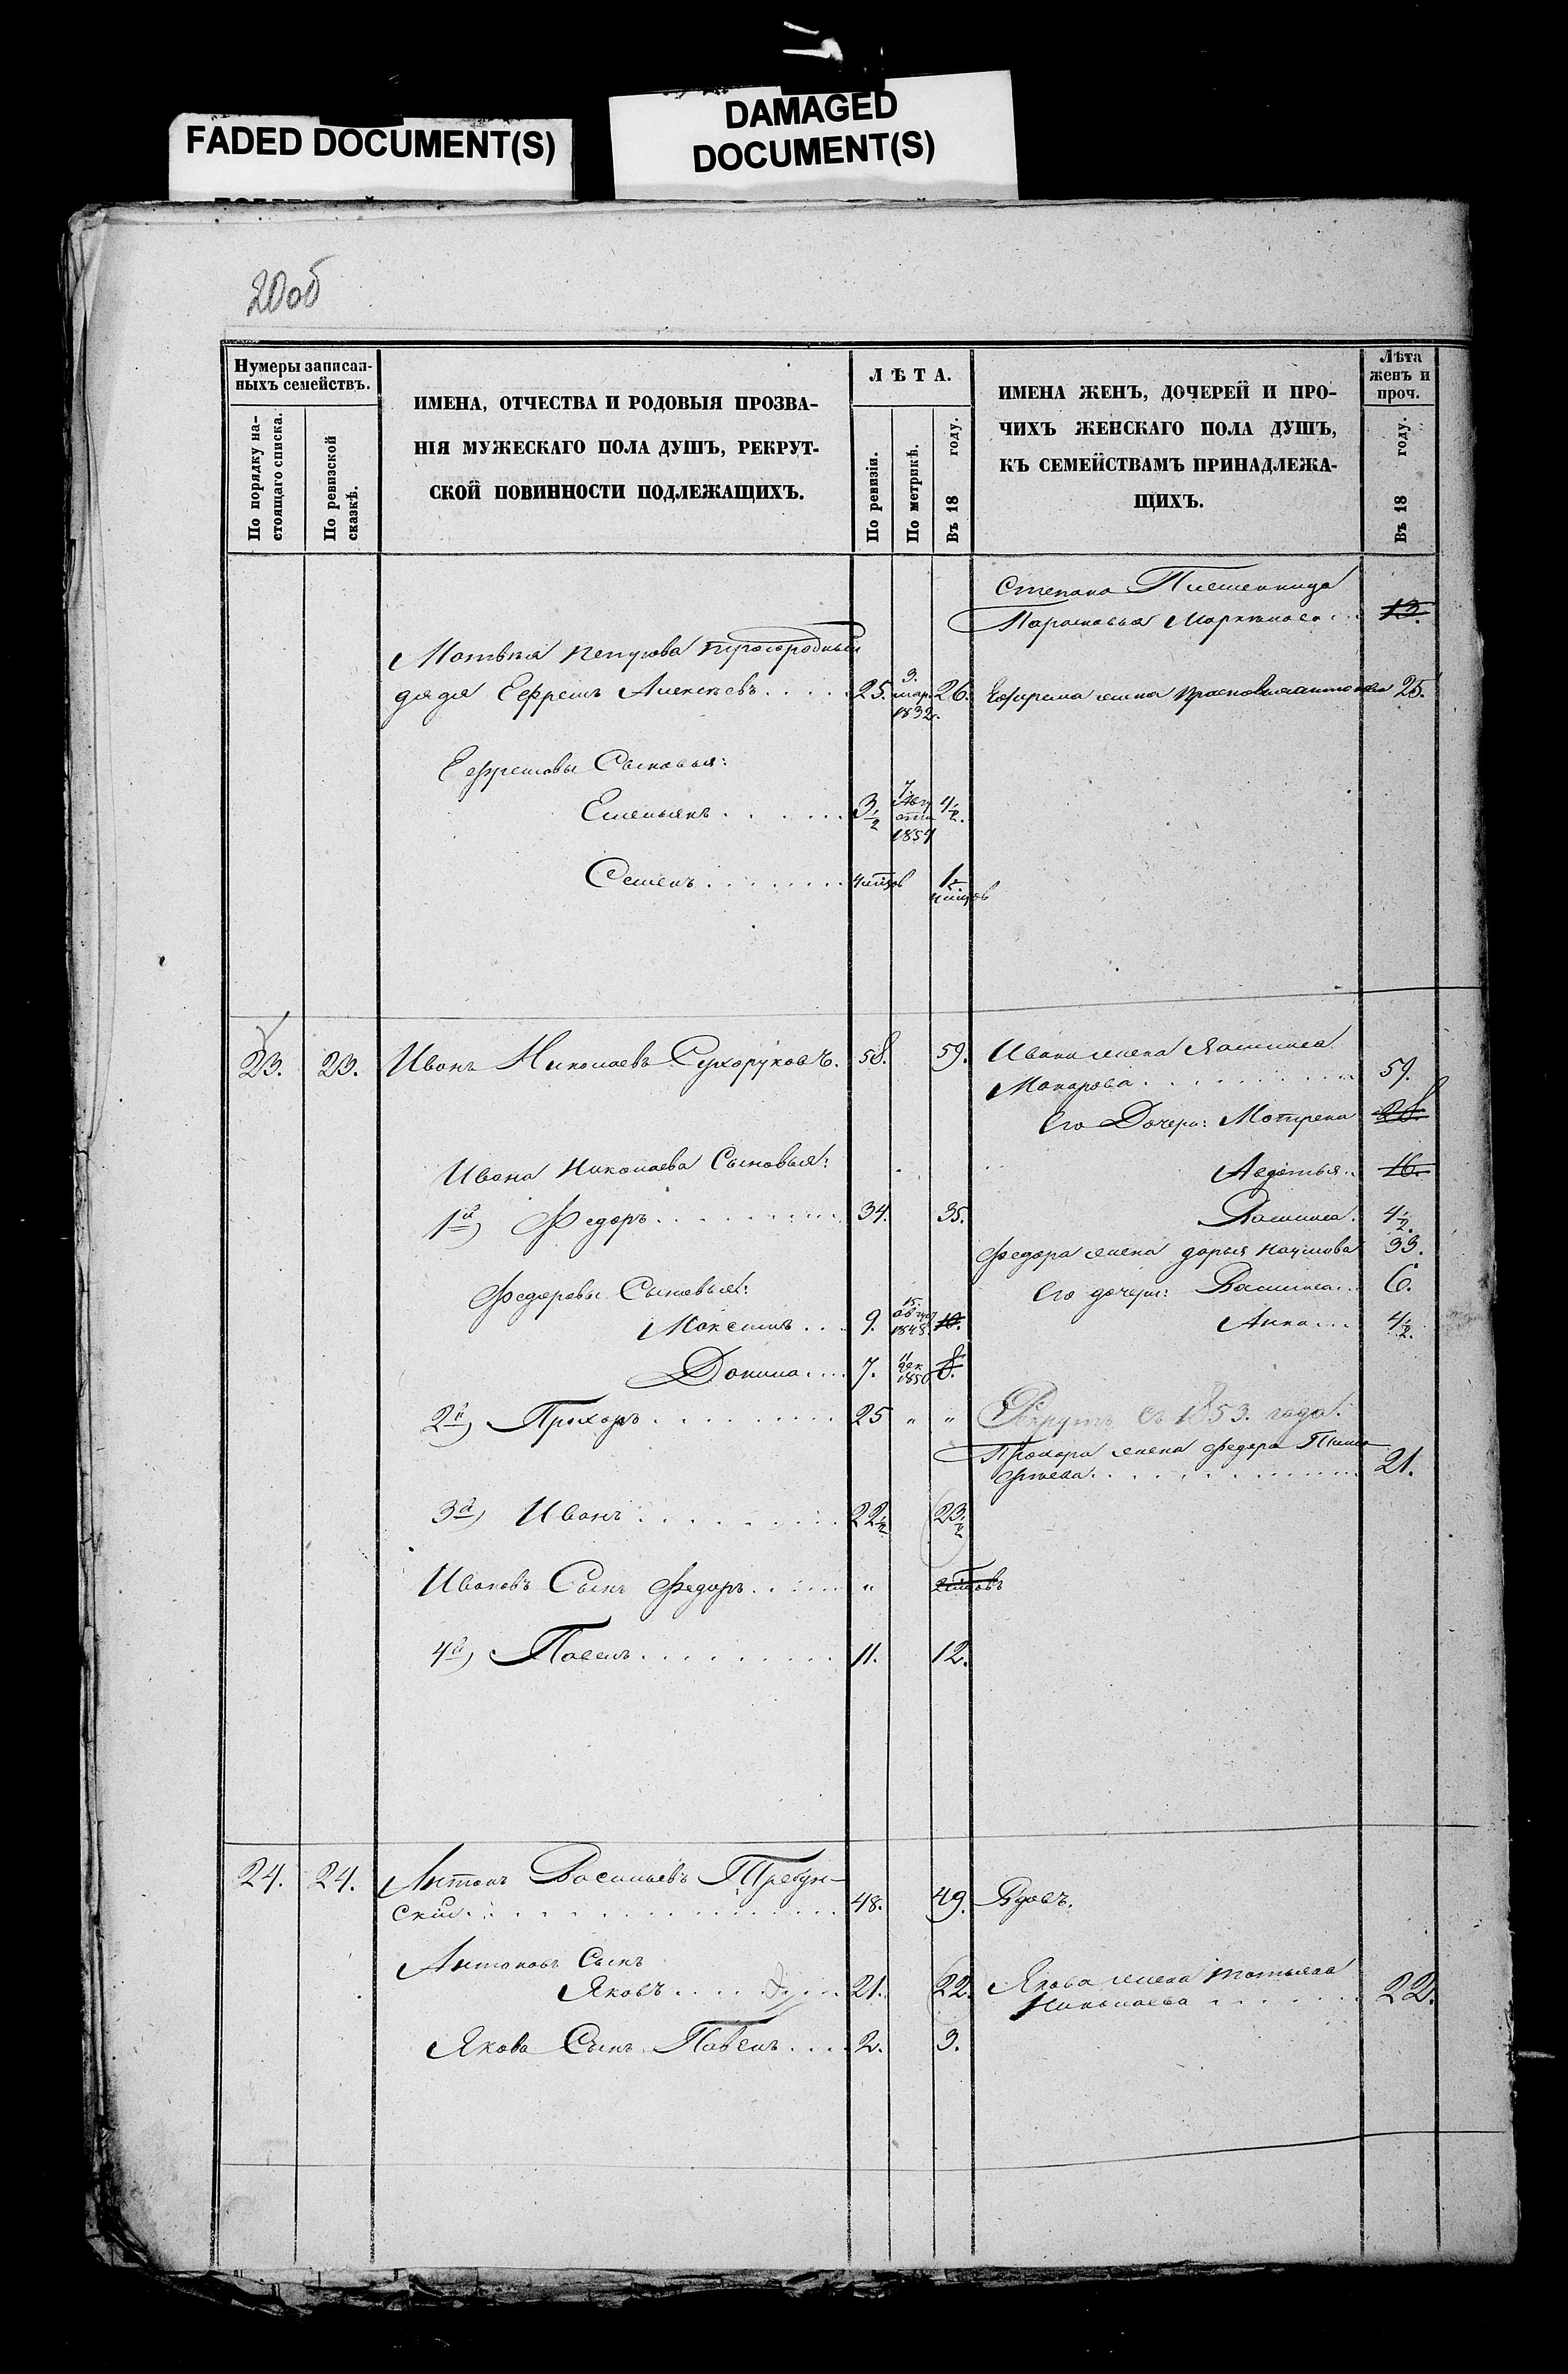 FADED DOCUMENT(S)
DAMAGED
DOCUMENT(S)
20об
Нумеры записан-
ныхъ семействъ.
По порядку на-
стоящаго списка.
По ревизской
сказкѣ.
ИМЕНА, ОТЧЕСТВА И РОДОВЫЯ ПРОЗВА-
НІЯ МУЖЕСКАГО ПОЛА ДУШЪ, РЕКРУТ-
СКОЙ ПОВИННОСТИ ПОДЛЕЖАЩИХЪ.
ЛѢТА.
По ревизіи.
По метрикѣ.
Въ 18 году.
ИМЕНА ЖЕНЪ, ДОЧЕРЕЙ И ПРО-
ЧИХЪ ЖЕНСКАГО ПОЛА ДУШЪ,
КЪ СЕМЕЙСТВАМЪ ПРИНАДЛЕЖА-
ЩИХЪ.
Лѣта
женъ и
проч.
Въ 18 году.
Степана Племенница
Парасковья 13.
Матвѣя
дядя Ефремъ Алексѣевъ 25. 3. мар. 1832. 26. Ефрема жена 25.
Ефремовы Сыновья:
Емельянъ 3 1/2 7. 4 1/2.
Семенъ 1
23. 23. Иванъ Николаевъ Сухоруковъ. 58. 59. Ивана жена Василиса
Макарова 59.
Его Дочери: Матрена 28.
Ивана Николаева Сыновья: Авдотья 16.
1й) Федоръ 34. 35. Василиса. 4 1/2.
Федора жена Дарья Наумова 33.
Федоровы Сыновья: Его дочери: Василиса 6.
Максимъ 9. 15 1848. 10. Анна 4 1/2.
Данила 7. 11 дек 1850 8.
2й) Прохоръ 25 " " Рекрутъ съ 1853. года.
Прохора жена Федора Тимо-
фѣева 21.
3й) Иванъ 22 1/2 23 1/2
Ивановъ Сынъ Федоръ "
4й) Павелъ 11. 12.
24. 24. Антонъ Васильевъ Требун-
скій 48. 49. Вдовъ.
Антоновъ Сынъ
Яковъ 21. 22. Якова жена Татьяна
Николаева 22.
Якова Сынъ Павелъ 2. 3.